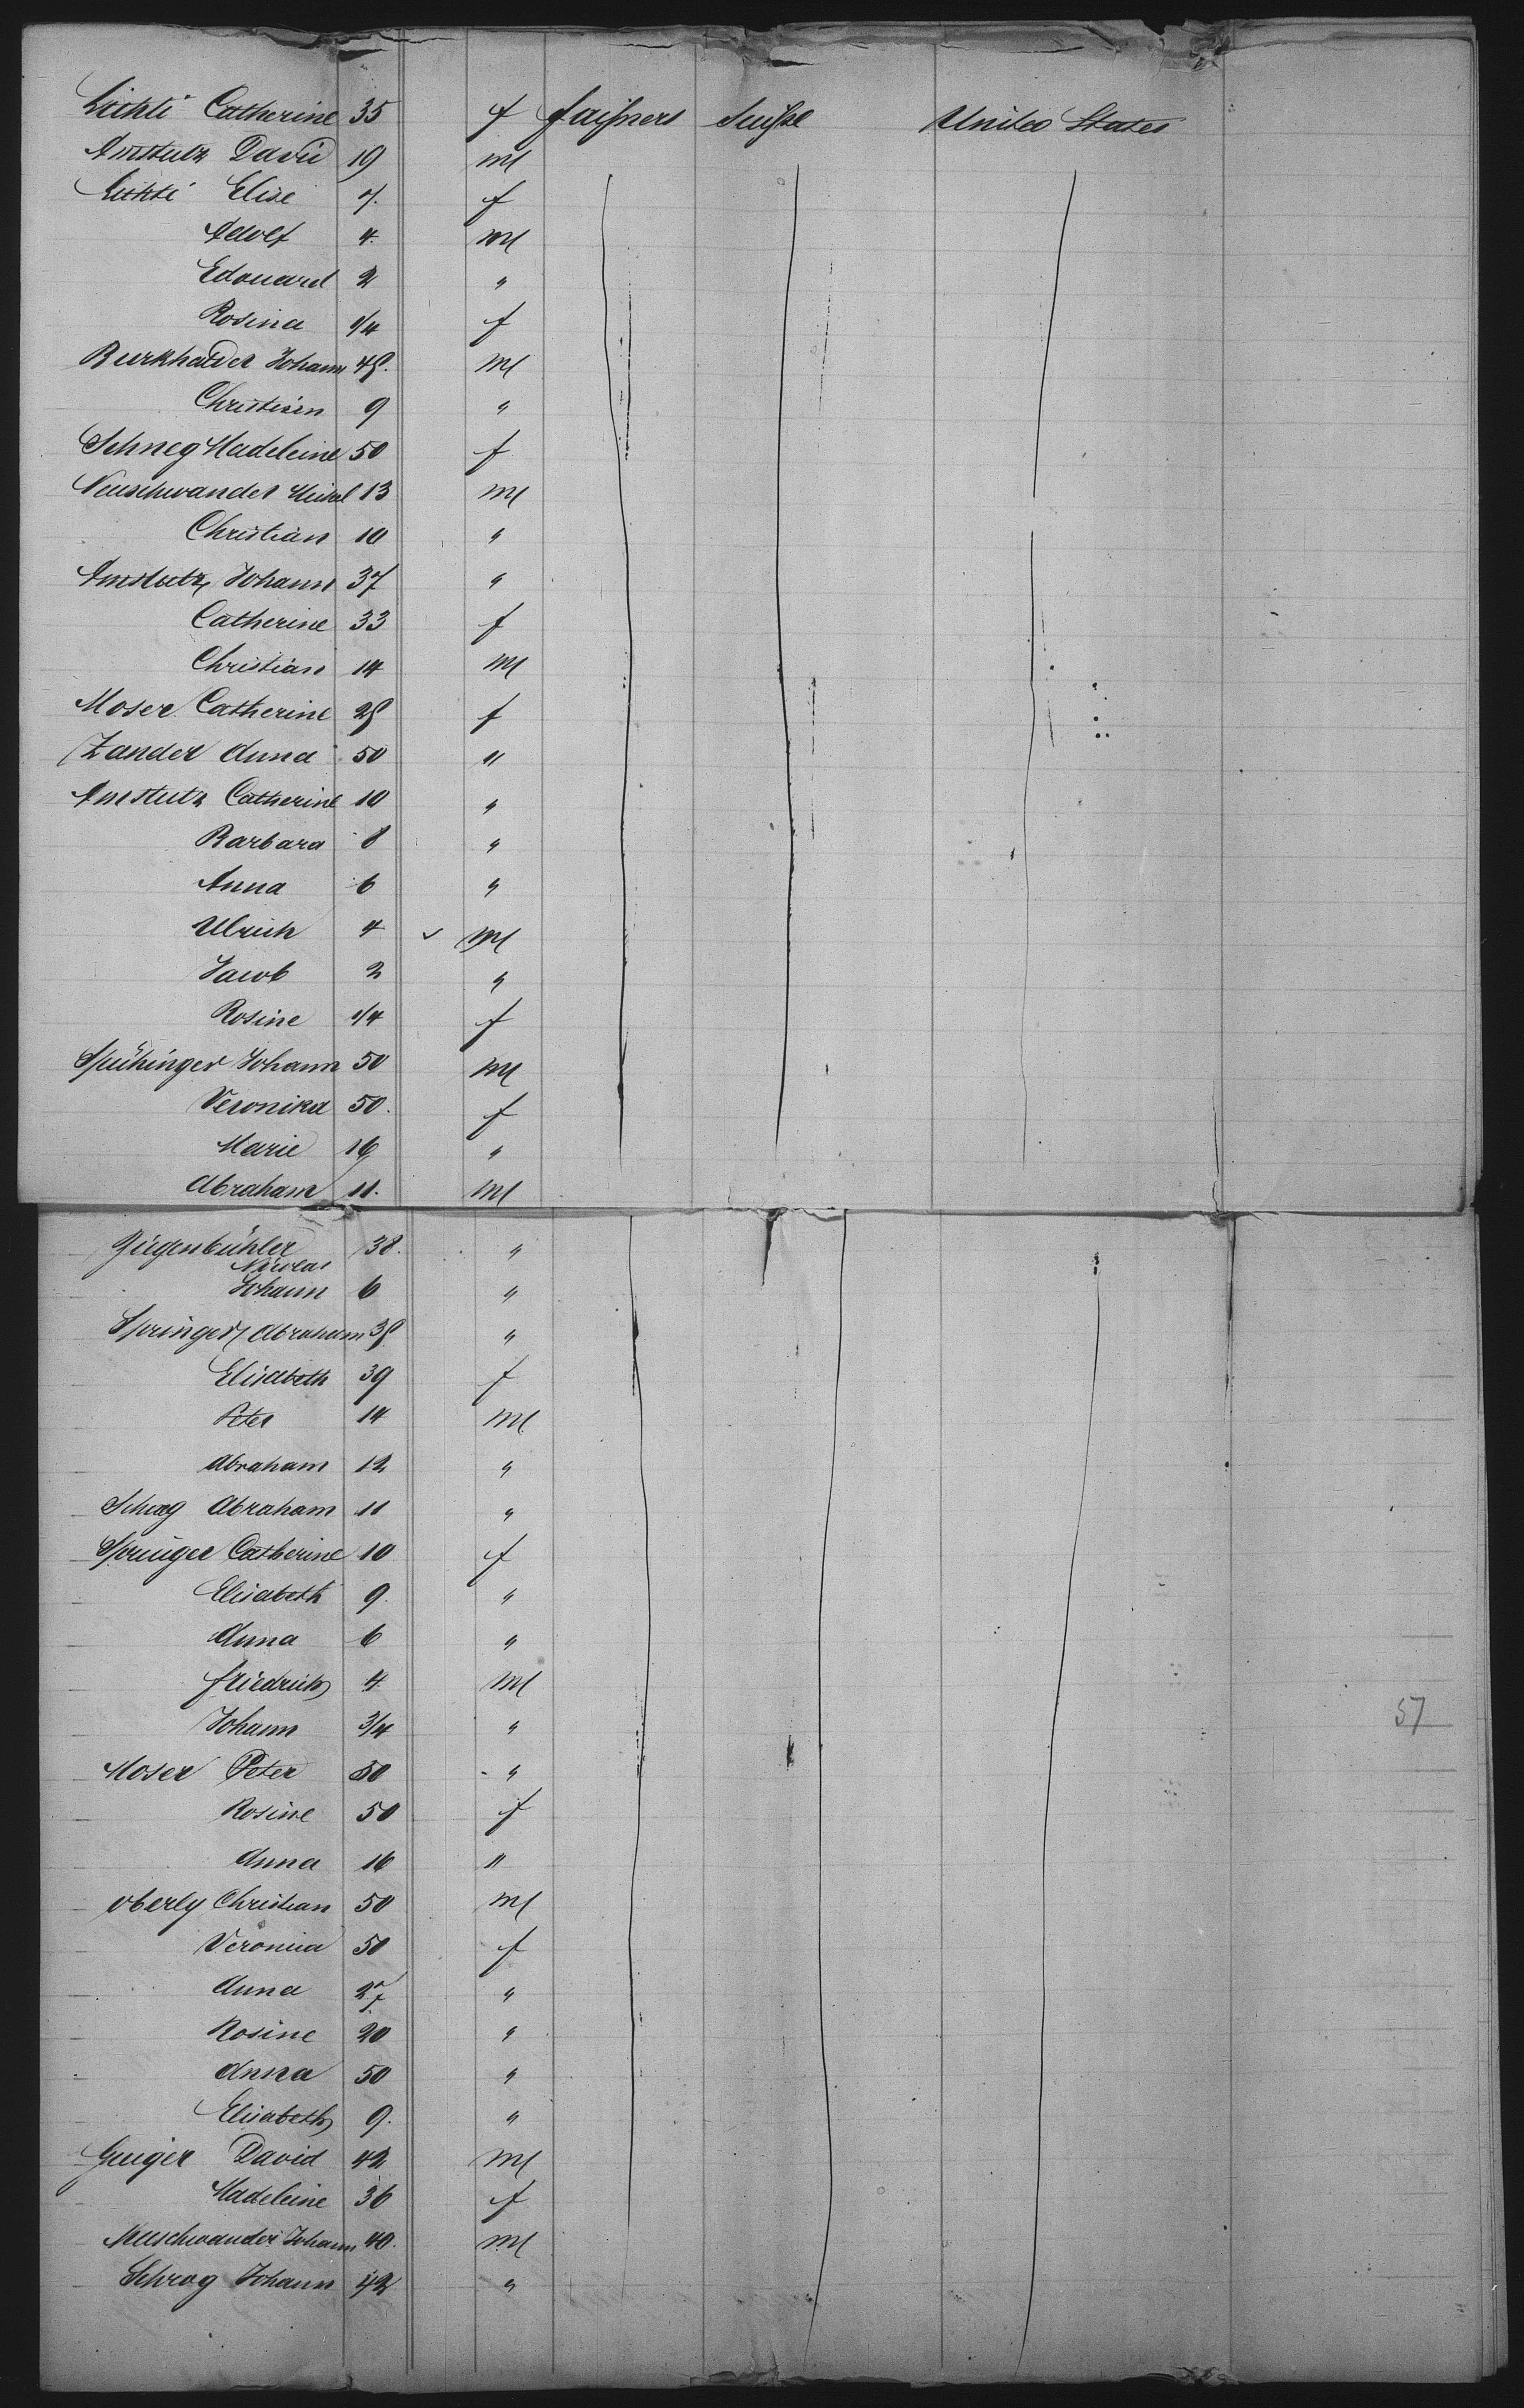 Lichti Catherine 35 f faißners Suiße United States
Amstutz David 19 M
Lichti Elise 7. f
Adolf 4. M
Edouard 2 "
Rosina 1/4 f
Burkhalder Johann 45. M
Christian 9 "
Schneg Madeleine 50 f
Neuschwander 13 M
Christian 10 "
Amstutz Johann 37 "
Catherine 33 f
Christian 14 M
Moser Catherine 25 f
Zander Anna 50 "
Amstutz Catherine 10 "
Barbara 8 "
Anna 6 "
Ulrich 4 M
Jacob 2 "
Rosine 1/4 f
Spühinger Johann 50 M
Veronika 50. f
Marie 16 "
Abraham 11. M
Giegenbühler 38. "
Nicolas
Johann 6 "
Springer Abraham 35 "
Elisabeth 39 f
Peter 14 M
Abraham 12 "
Schrag Abraham 11 "
Springer Catherine 10 f
Elisabeth 9. "
Anna 6 "
Friedrich 4. M
Johann 3/4 "
57
Moser Peter 50 "
Rosine 50 f
Anna 16 "
Oberly Christian 50 M
Veronica 50 f
Anna 27 "
Rosine 20 "
Anna 50 "
Elisabeth 9. "
Geiger David 42 M
Madeleine 36 f
Neuschwander Johann 40. M
Schrog Johann 42 "